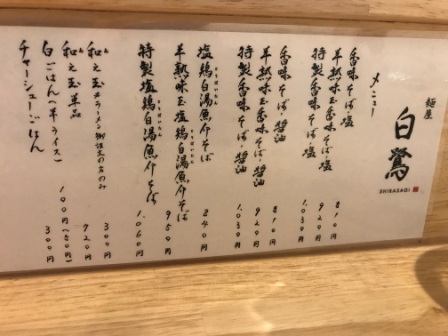 麺屋
白鷺
SHIRASAGI
メニュー
香味そば・塩 810円
半熟味玉香味そば・塩 920円
特製香味そば・塩 1,030円
香味そば・醤油 810円
半熟味玉香味そば・醤油 920円
特製香味そば・醤油 1,030円
塩鶏白湯魚介そば 840円
半熟味玉塩鶏白湯魚介そば 950円
特製塩鶏白湯魚介そば 1,060円
和え玉 ※ラーメン御注文の方のみ 300円
和え玉単品 920円
白ごはん(半ライス) 100円(50円)
チャーシューごはん 300円